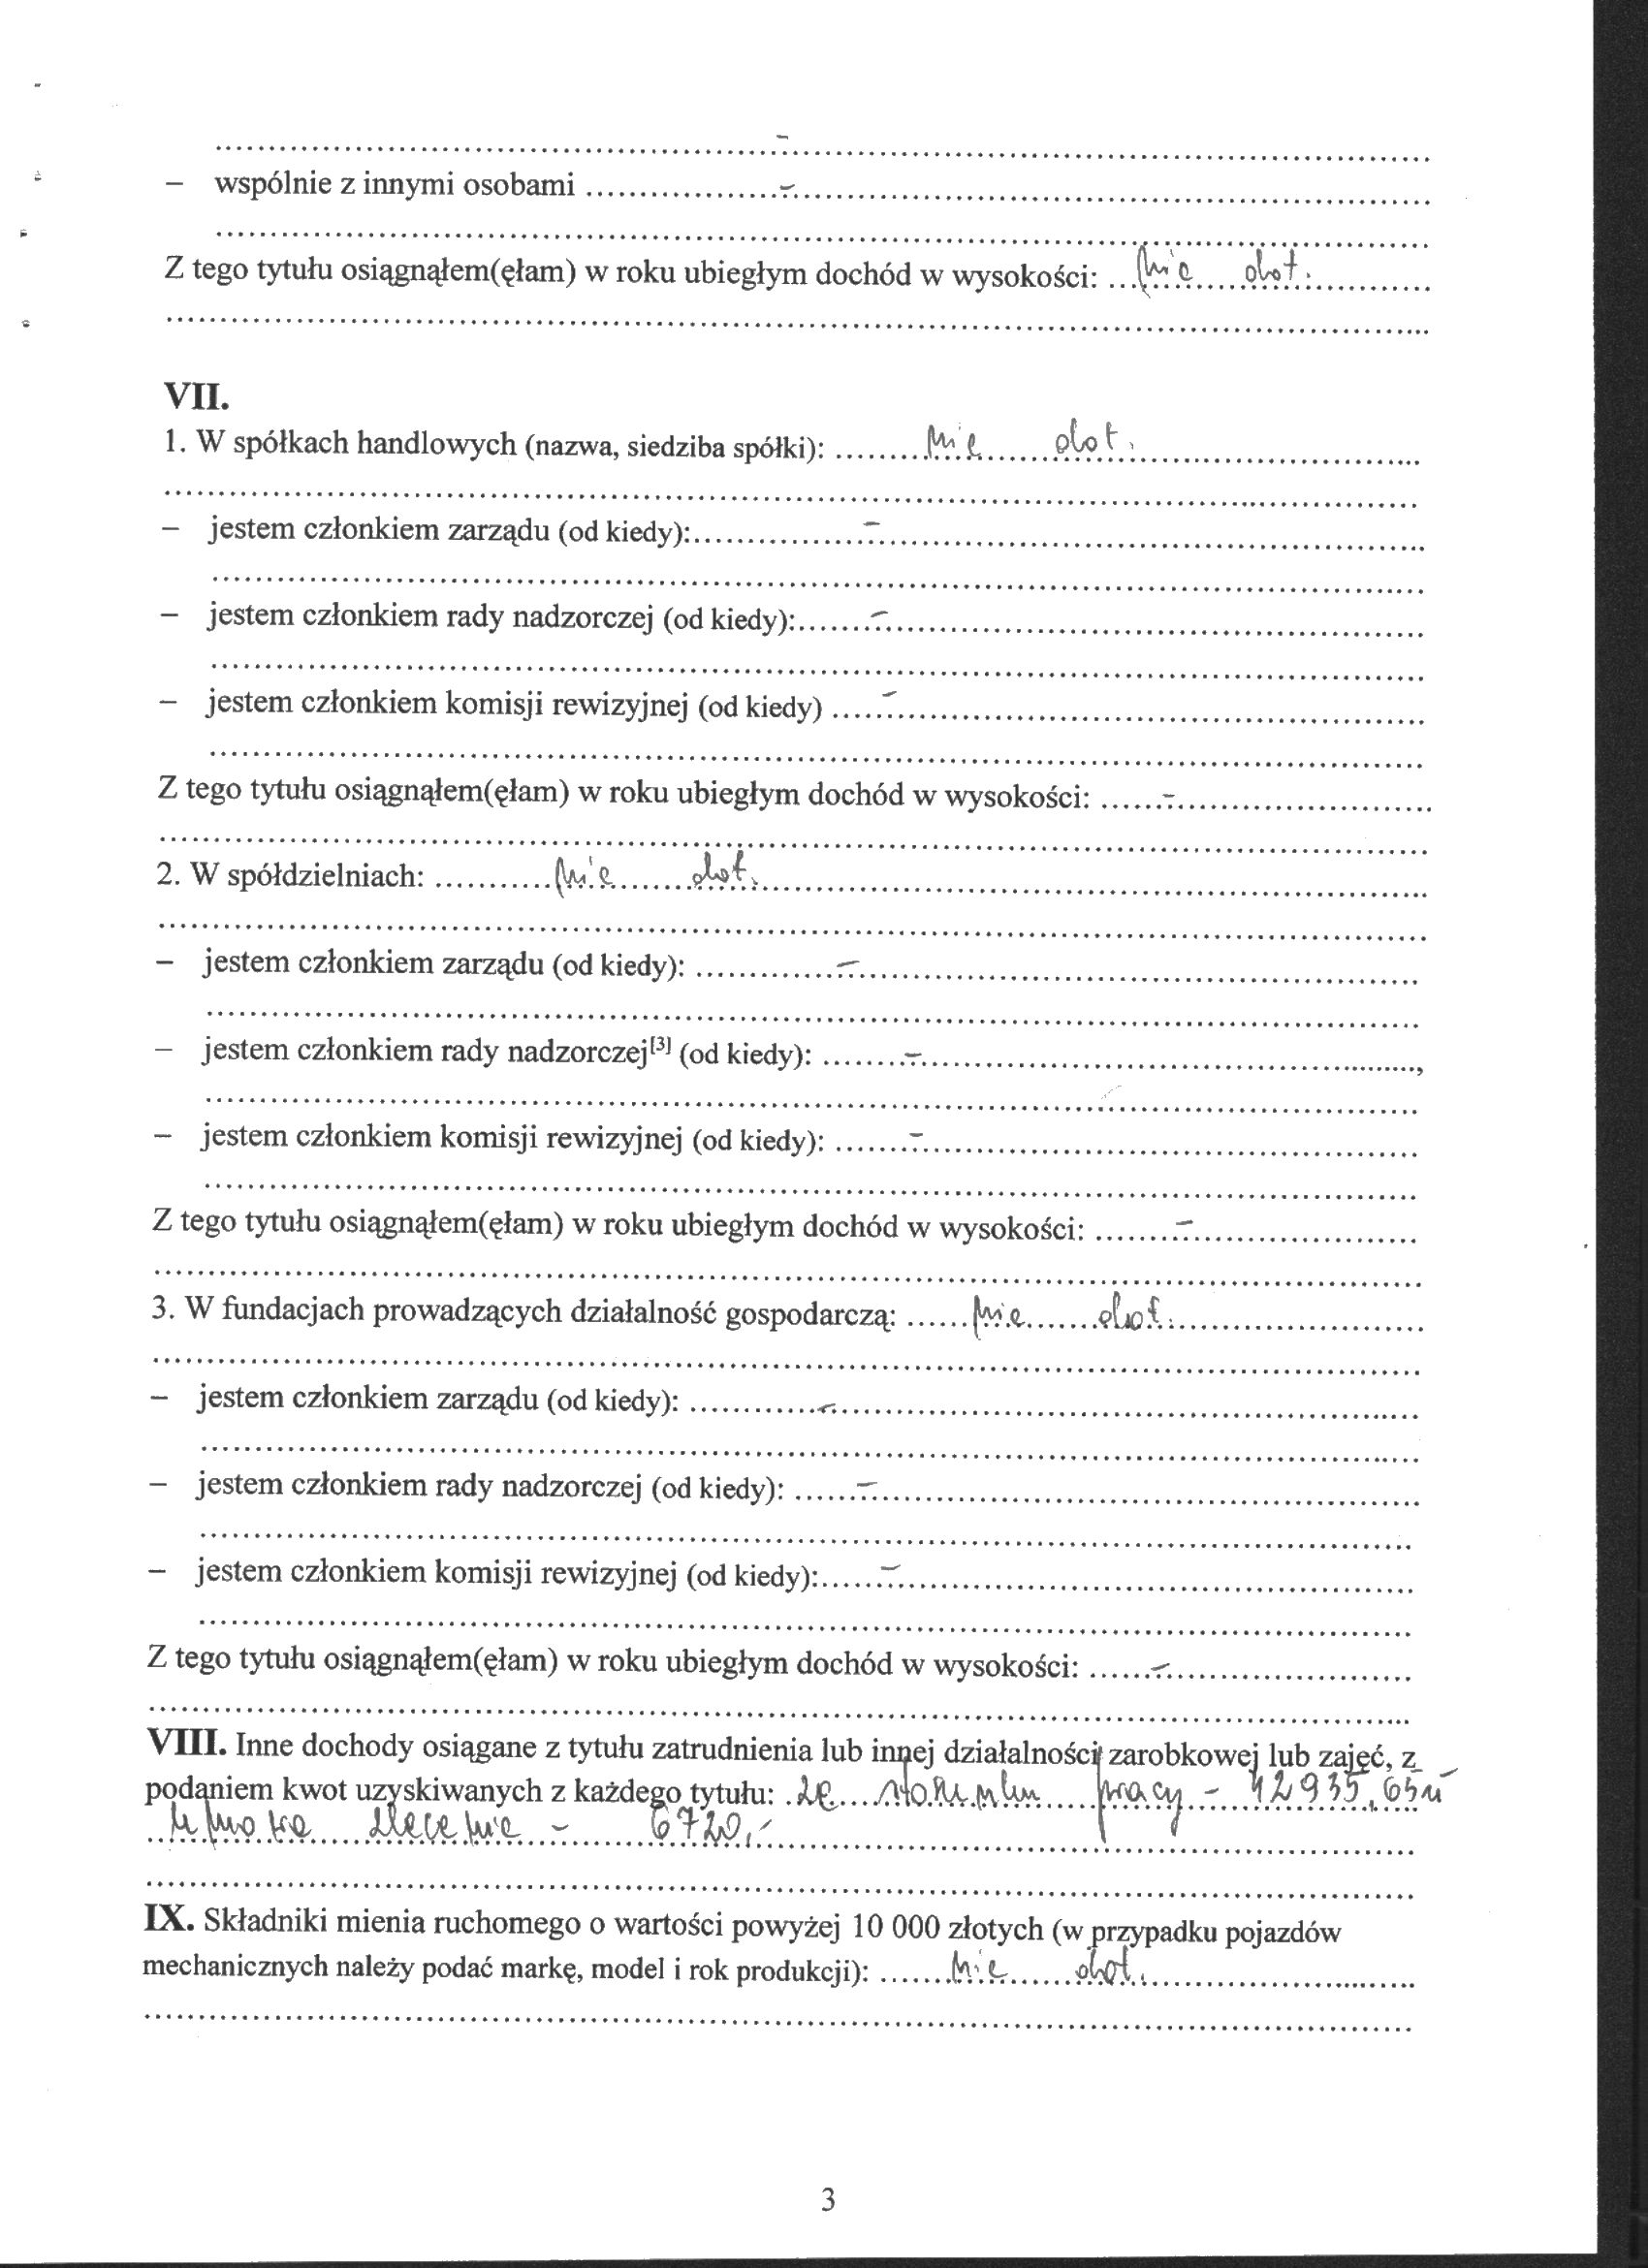 -
– wspólnie z innymi osobami -
Z tego tytułu osiągnąłem(ęłam) w roku ubiegłym dochód w wysokości: nie dot.
VII.
1. W spółkach handlowych (nazwa, siedziba spółki): nie dot.
– jestem członkiem zarządu (od kiedy): -
– jestem członkiem rady nadzorczej (od kiedy): -
– jestem członkiem komisji rewizyjnej (od kiedy) -
Z tego tytułu osiągnąłem(ęłam) w roku ubiegłym dochód w wysokości: -
2. W spółdzielniach: nie dot.
– jestem członkiem zarządu (od kiedy): -
– jestem członkiem rady nadzorczej[3] (od kiedy): -,
– jestem członkiem komisji rewizyjnej (od kiedy): -
Z tego tytułu osiągnąłem(ęłam) w roku ubiegłym dochód w wysokości: -
3. W fundacjach prowadzących działalność gospodarczą: nie dot.
– jestem członkiem zarządu (od kiedy): -
– jestem członkiem rady nadzorczej (od kiedy): -
– jestem członkiem komisji rewizyjnej (od kiedy): -
Z tego tytułu osiągnąłem(ęłam) w roku ubiegłym dochód w wysokości: -
VIII. Inne dochody osiągane z tytułu zatrudnienia lub innej działalności zarobkowej lub zajęć, z
podaniem kwot uzyskiwanych z każdego tytułu: ze stosunku pracy - 42935,65
umowa zlecenie - 6720,-
IX. Składniki mienia ruchomego o wartości powyżej 10 000 złotych (w przypadku pojazdów
mechanicznych należy podać markę, model i rok produkcji): nie dot.
3